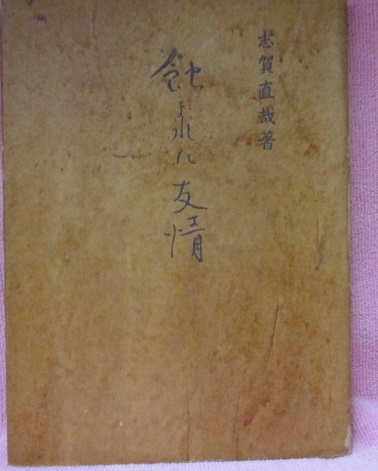 志賀直哉著
蝕まれた友情